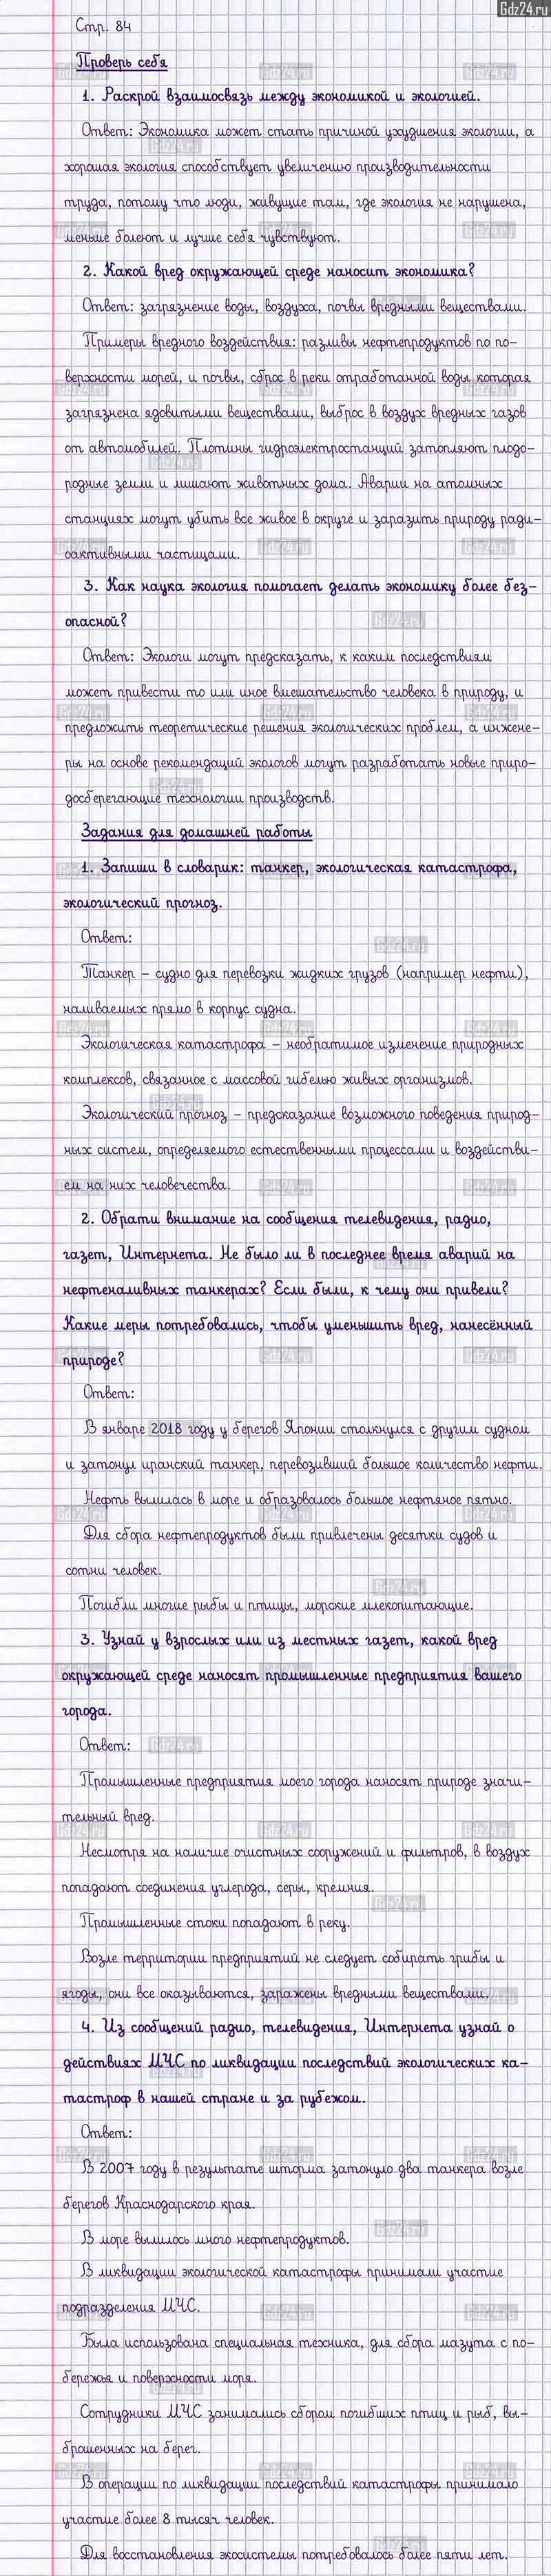 Gdz24.ru
Стр. 84
Проверь себя
1. Раскрой взаимосвязь между экономикой и экологией.
Ответ: Экономика может стать причиной ухудшения экологии, а
хорошая экология способствует увеличению производительности
труда, потому что люди, живущие там, где экология не нарушена,
меньше болеют и лучше себя чувствуют.
2. Какой вред окружающей среде наносит экономика?
Ответ: загрязнение воды, воздуха, почвы вредными веществами.
Примеры вредного воздействия: разливы нефтепродуктов по по-
верхности морей, и почвы, сброс в реки отработанной воды которая
загрязнена ядовитыми веществами, выброс в воздух вредных газов
от автомобилей. Плотины гидроэлектростанций затопляют плодо-
родные земли и лишают животных дома. Аварии на атомных
станциях могут убить все живое в округе и заразить природу ради-
оактивными частицами.
3. Как наука экология помогает делать экономику более без-
опасной?
Ответ: Экологи могут предсказать, к каким последствиям
может привести то или иное вмешательство человека в природу, и
предложить теоретические решения экологических проблем, а инжене-
ры на основе рекомендаций экологов могут разработать новые приро-
досберегающие технологии производств.
Задания для домашней работы
1. Запиши в словарик: танкер, экологическая катастрофа,
экологический прогноз.
Ответ:
Танкер – судно для перевозки жидких грузов (например нефти),
наливаемых прямо в корпус судна.
Экологическая катастрофа – необратимое изменение природных
комплексов, связанное с массовой гибелью живых организмов.
Экологический прогноз – предсказание возможного поведения природ-
ных систем, определяемого естественными процессами и воздействи-
ем на них человечества.
2. Обрати внимание на сообщения телевидения, радио,
газет, Интернета. Не было ли в последнее время аварий на
нефтеналивных танкерах? Если были, к чему они привели?
Какие меры потребовались, чтобы уменьшить вред, нанесённый
природе?
Ответ:
В январе 2018 году у берегов Японии столкнулся с другим судном
и затонул иранский танкер, перевозивший большое количество нефти.
Нефть вылилась в море и образовалось большое нефтяное пятно.
Для сбора нефтепродуктов были привлечены десятки судов и
сотни человек.
Погибли многие рыбы и птицы, морские млекопитающие.
3. Узнай у взрослых или из местных газет, какой вред
окружающей среде наносят промышленные предприятия вашего
города.
Ответ:
Промышленные предприятия моего города наносят природе значи-
тельный вред.
Несмотря на наличие очистных сооружений и фильтров, в воздух
попадают соединения углерода, серы, кремния.
Промышленные стоки попадают в реку.
Возле территории предприятий не следует собирать грибы и
ягоды, они все оказываются, заражены вредными веществами.
4. Из сообщений радио, телевидения, Интернета узнай о
действиях МЧС по ликвидации последствий экологических ка-
тастроф в нашей стране и за рубежом.
Ответ:
В 2007 году в результате шторма затонуло два танкера возле
берегов Краснодарского края.
В море вылилось много нефтепродуктов.
В ликвидации экологической катастрофы принимали участие
подразделения МЧС.
Была использована специальная техника, для сбора мазута с по-
бережья и поверхности моря.
Сотрудники МЧС занимались сбором погибших птиц и рыб, вы-
брошенных на берег.
В операции по ликвидации последствий катастрофы принимало
участие более 8 тысяч человек.
Для восстановления экосистемы потребовалось более пяти лет.